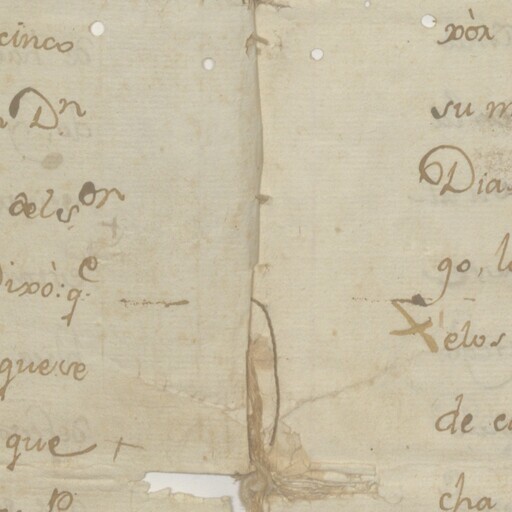 cinco
Dn
del sor
Dixò: q.e
queve
que +
pòr
su m
Dia
go, l
Xelos
de c
cha